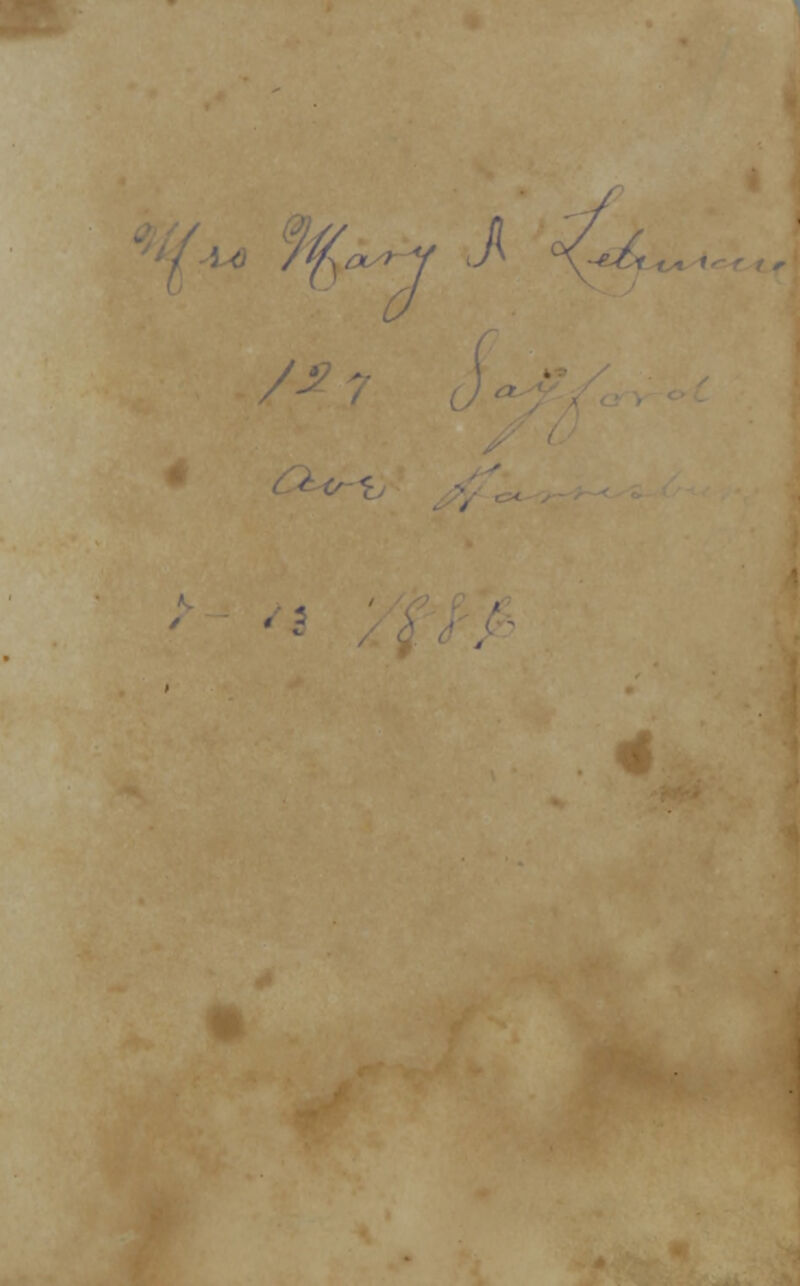 Mrs Mary A Lehman
127 Sayford
Ave Harrisburg
7-13 1886